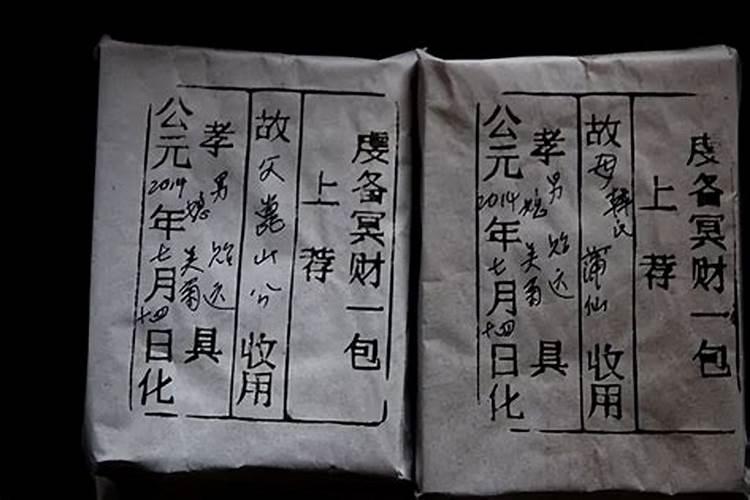 虔备冥财一包
上荐
故父嵩山公收用
孝男 贻远 具
媳 美菊
公元2014年七月十四日化
虔备冥财一包
上荐
故母韩氏 蒲仙 收用
孝男 贻远 具
媳 美菊
公元2014年七月十四日化